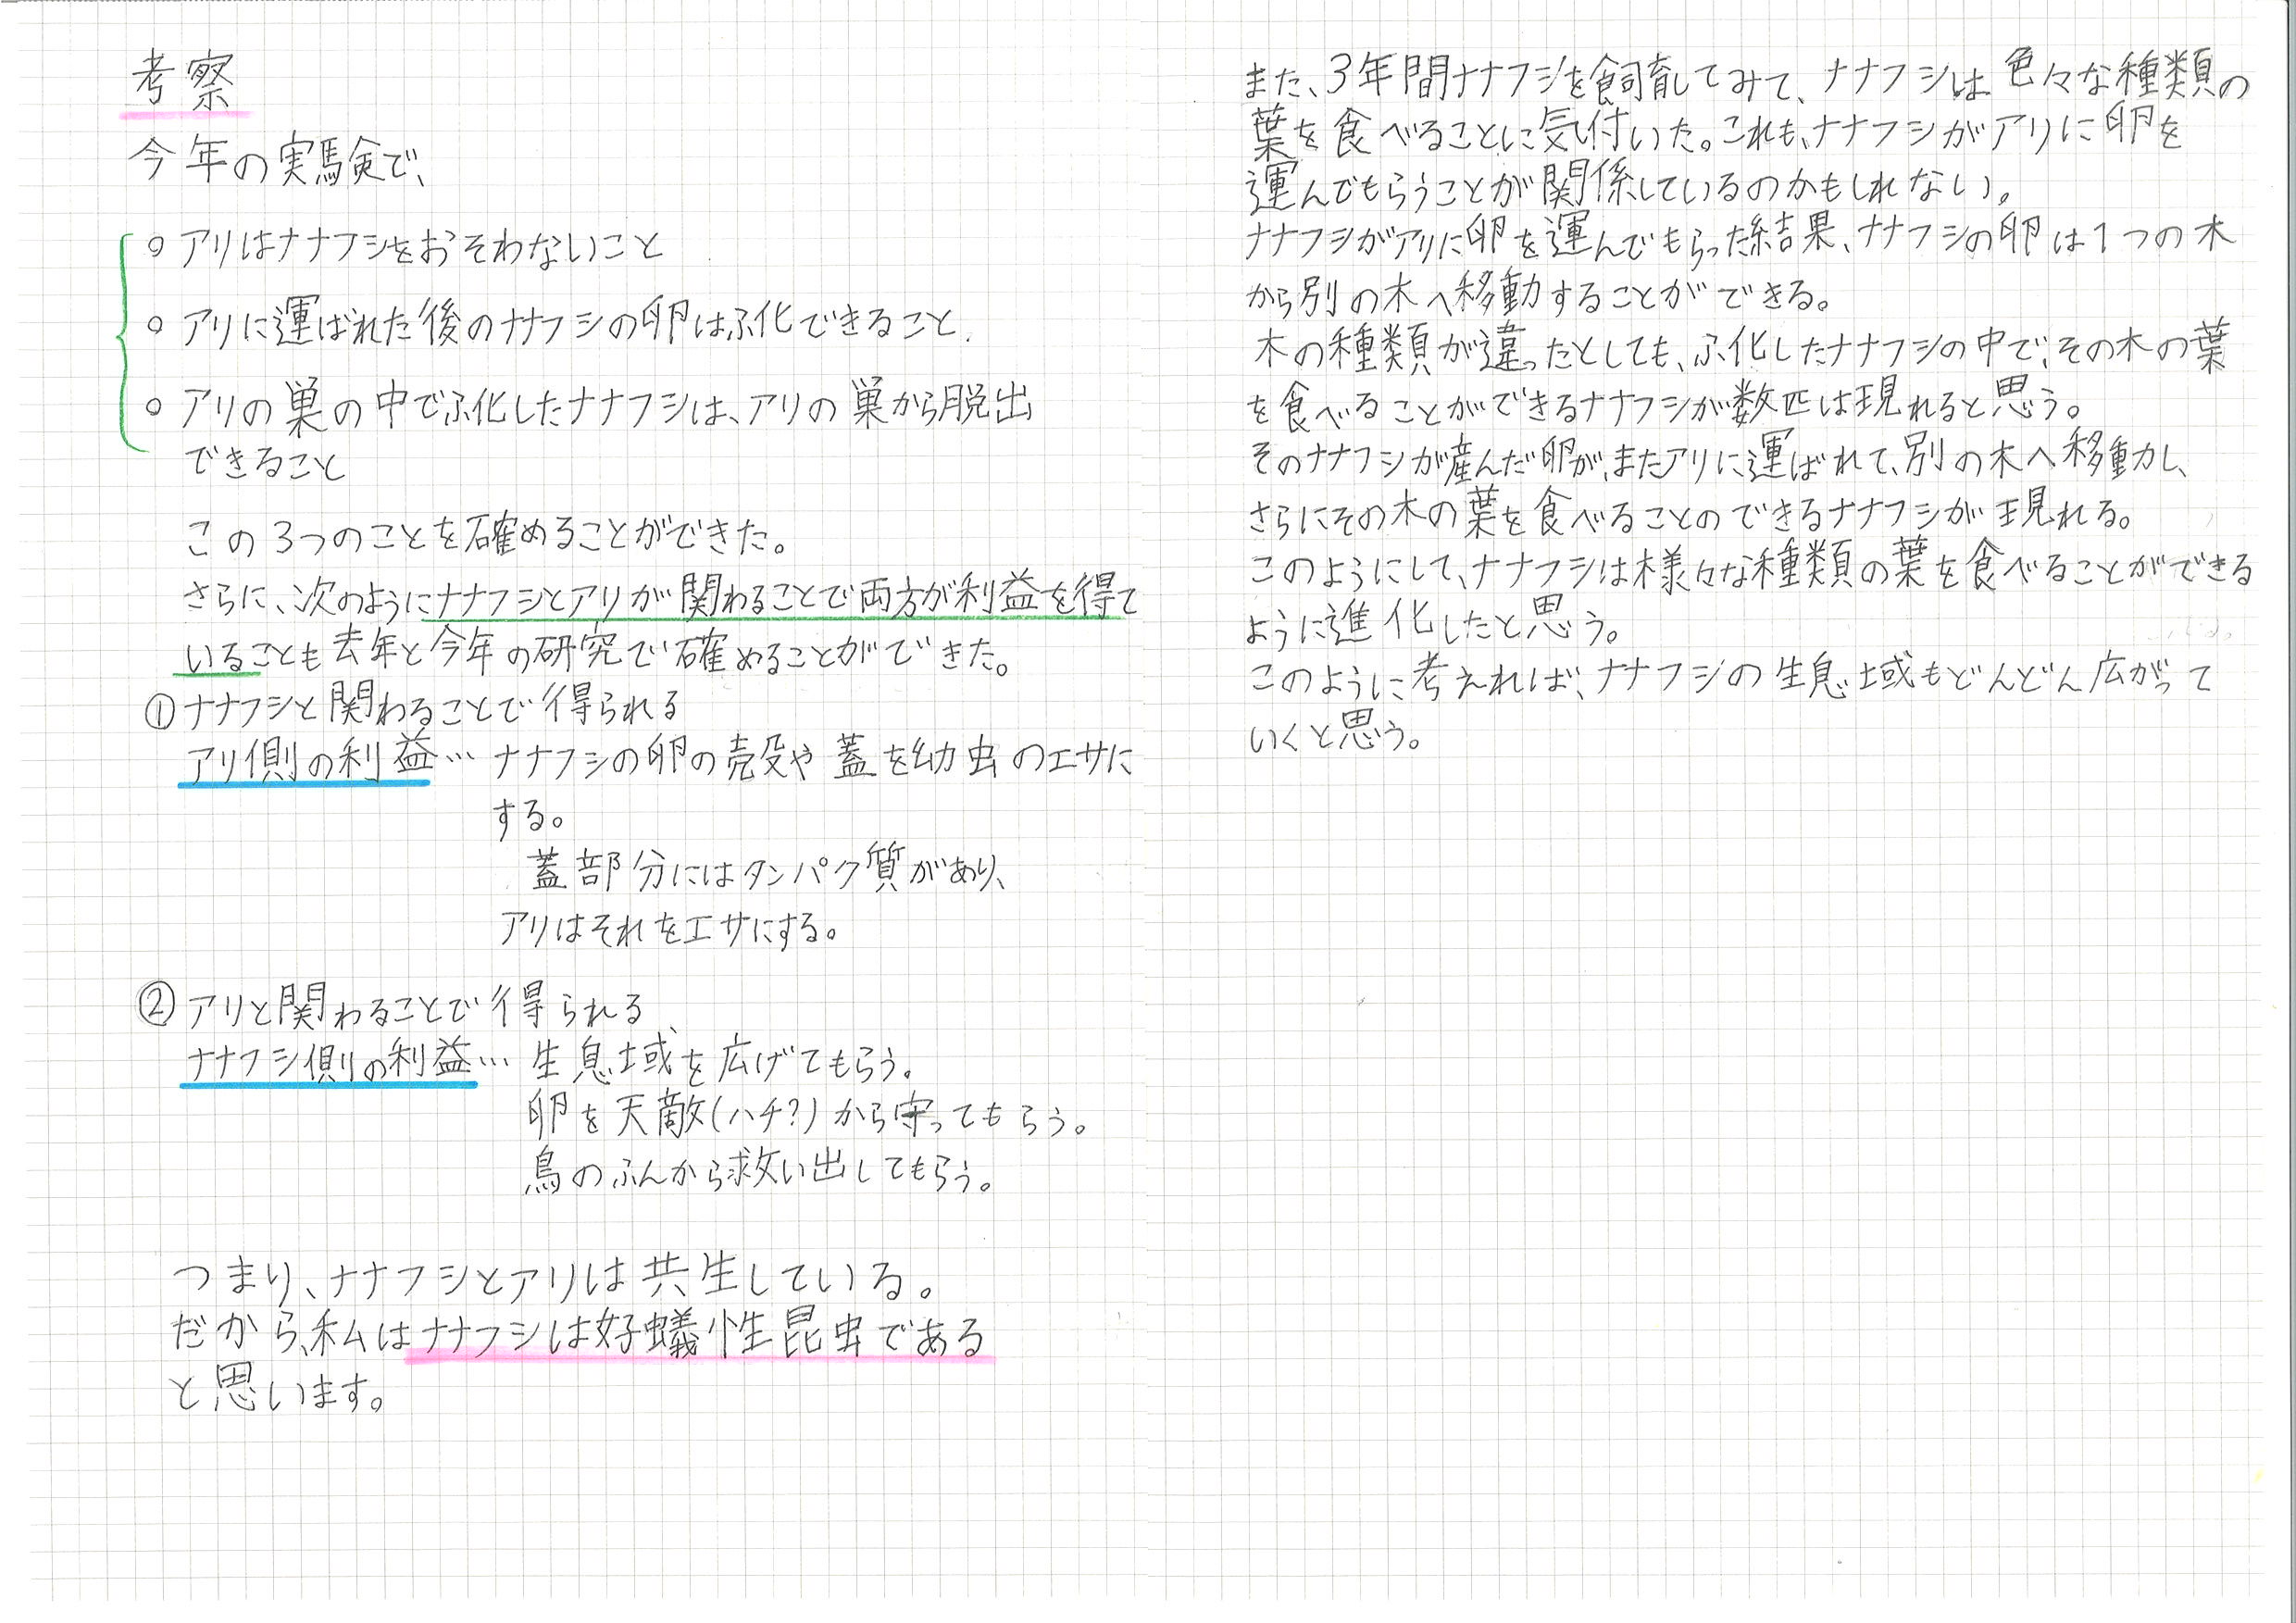 考察
今年の実験で、
○ アリはナナフシをおそわないこと
○ アリに運ばれた後のナナフシの卵はふ化できること.
○ アリの巣の中でふ化したナナフシは、アリの巣から脱出
できること
この3つのことを確めることができた。
さらに、次のようにナナフシとアリが関わることで両方が利益を得て
いることも去年と今年の研究で確めることができた。
①ナナフシと関わることで得られる
アリ側の利益… ナナフシの卵の殻や蓋を幼虫のエサに
する。
蓋部分にはタンパク質があり、
アリはそれをエサにする。
②アリと関わることで得られる
ナナフシ側の利益… 生息域を広げてもらう。
卵を天敵(ハチ?)から守ってもらう。
鳥のふんから救い出してもらう。
つまり、ナナフシとアリは共生している。
だから、私はナナフシは好蟻性昆虫である
と思います。
また、3年間ナナフシを飼育してみて、ナナフシは色々な種類の
葉を食べることに気付いた。これも、ナナフシがアリに卵を
運んでもらうことが関係しているのかもしれない。
ナナフシがアリに卵を運んでもらった結果、ナナフシの卵は1つの木
から別の木へ移動することができる。
木の種類が違ったとしても、ふ化したナナフシの中で、その木の葉
を食べることができるナナフシが数匹は現れると思う。
そのナナフシが産んだ卵が、またアリに運ばれて、別の木へ移動し、
さらにその木の葉を食べることのできるナナフシが現れる。
このようにして、ナナフシは様々な種類の葉を食べることができる
ように進化したと思う。
このように考えれば、ナナフシの生息域もどんどん広がって
いくと思う。